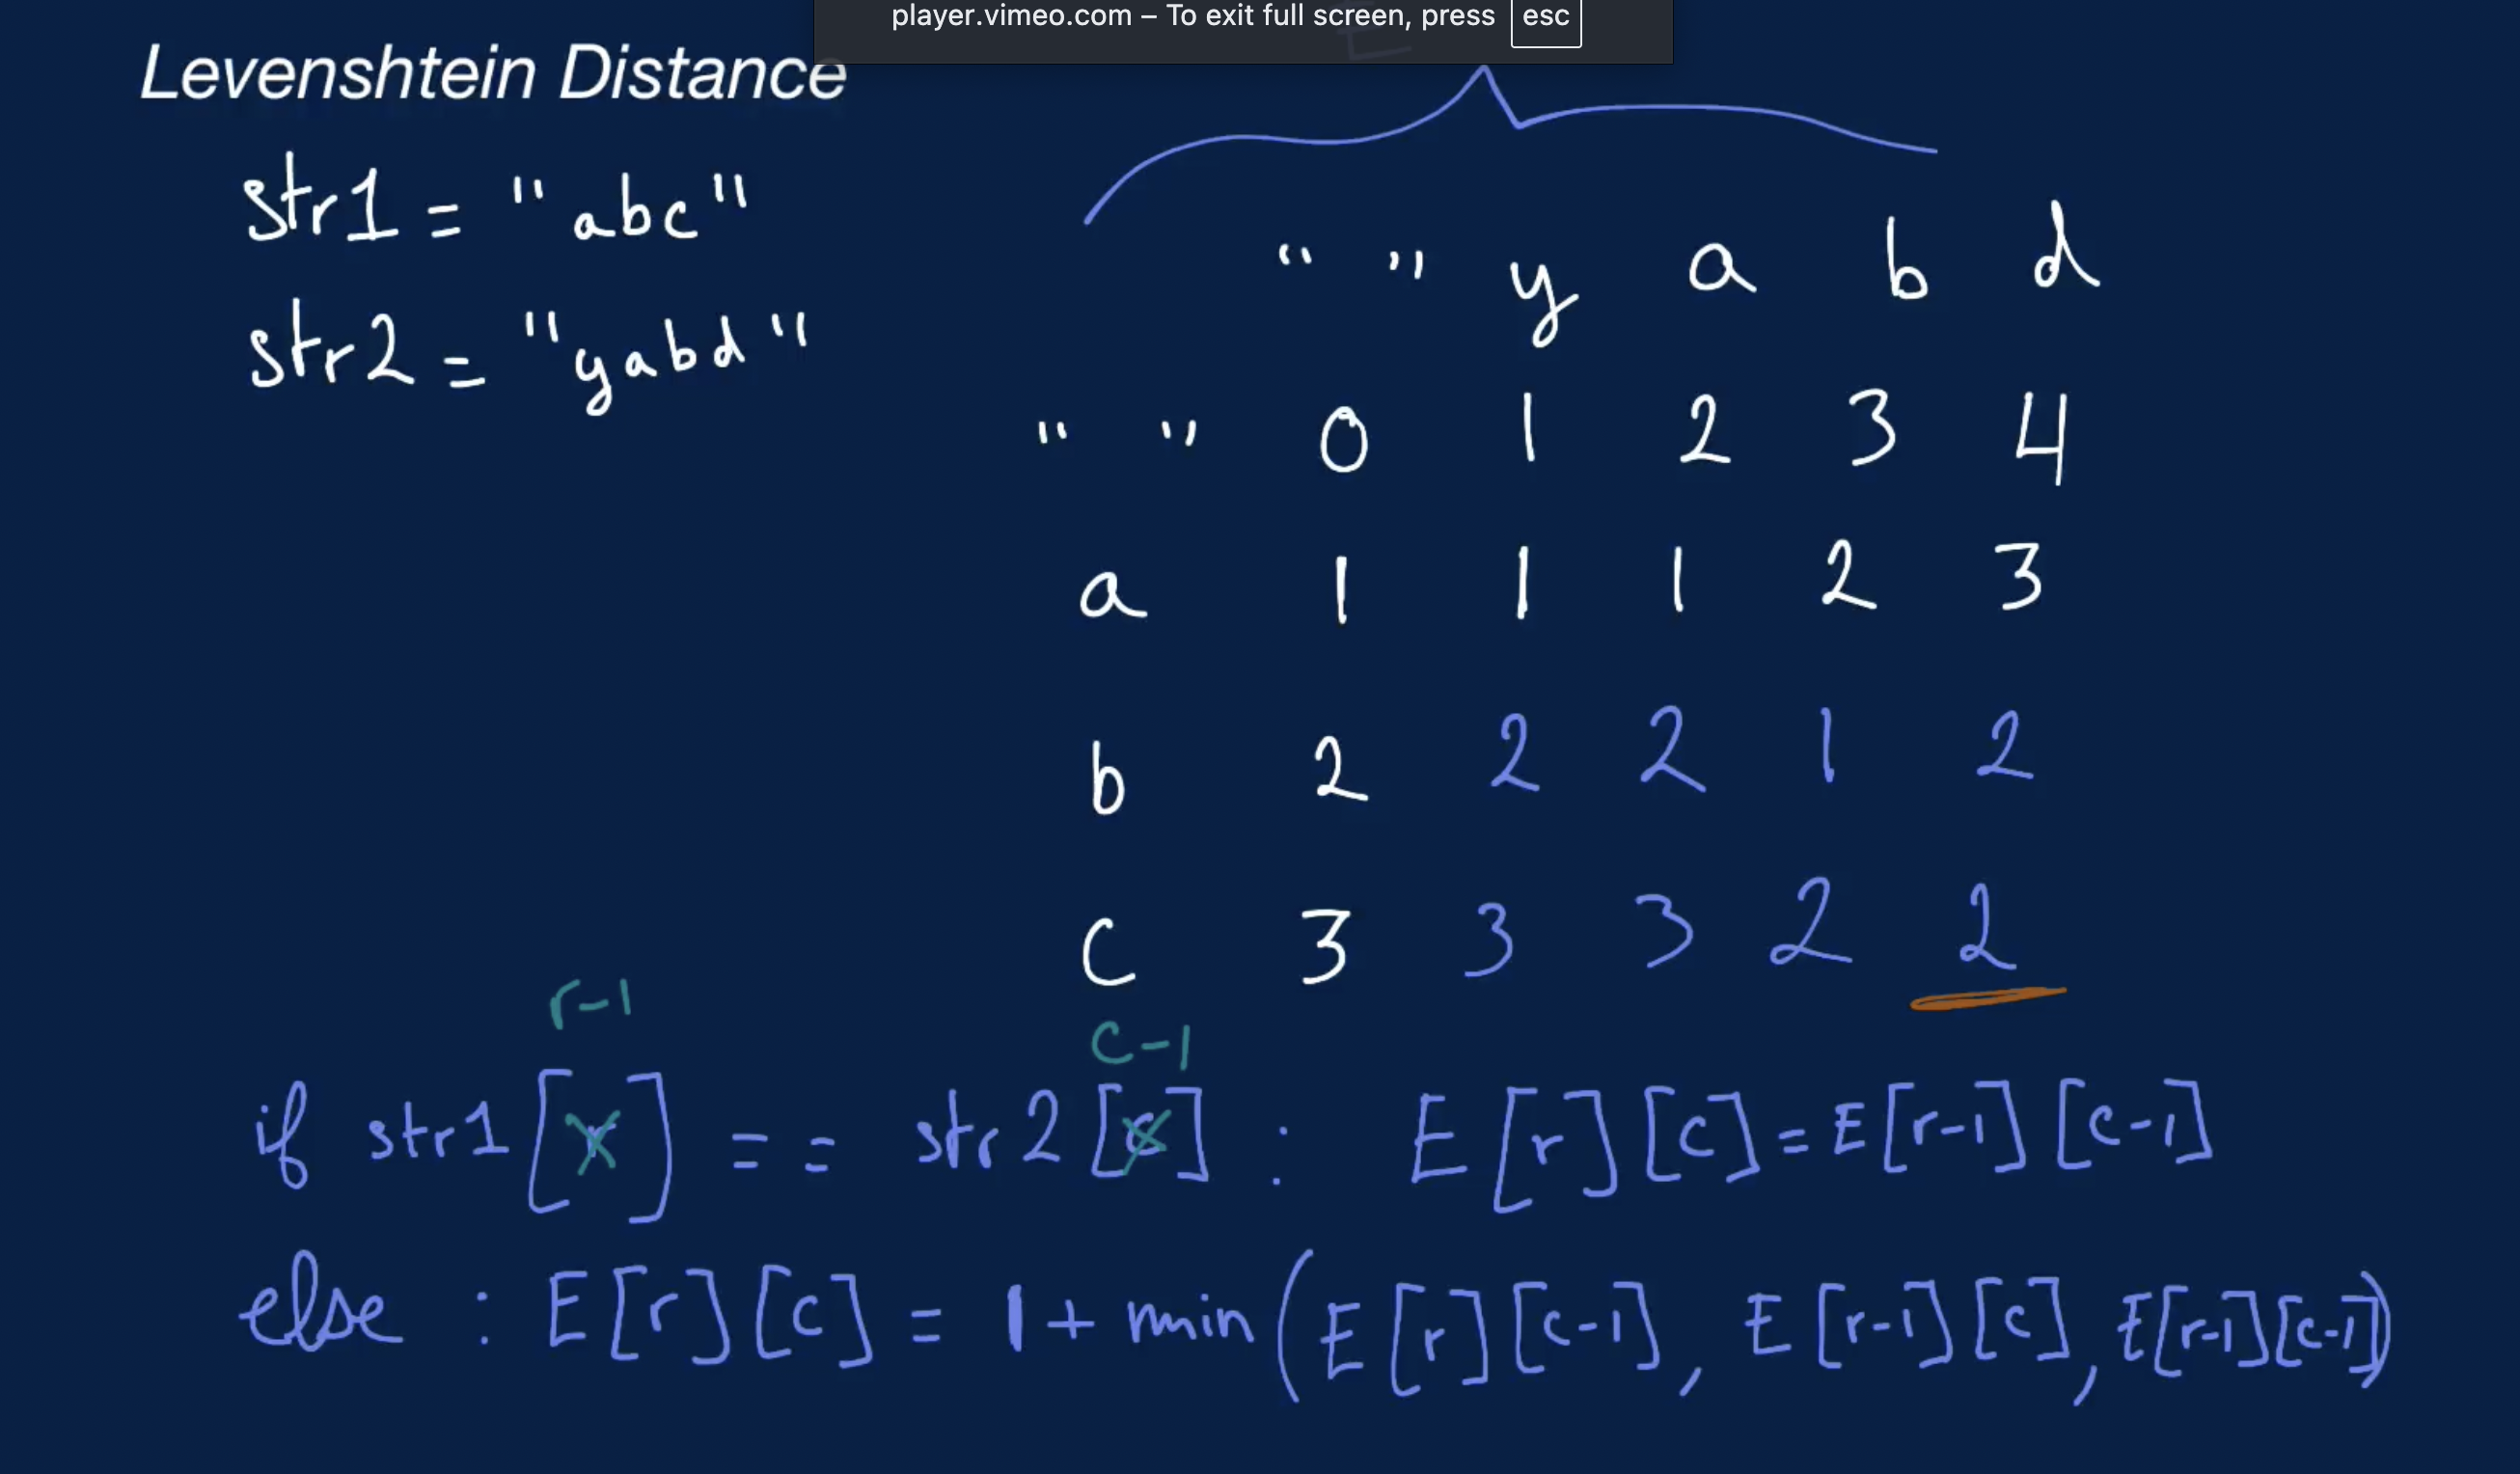 player.vimeo.com – To exit full screen, press esc
E
Levenshtein Distance
str1 = "abc"
str2 = "yabd"
" " y a b d
" " 0 1 2 3 4
a 1 1 1 2 3
b 2 2 2 1 2
c 3 3 3 2 2
r-1
c-1
if str1[r] == str2[c] : E[r][c] = E[r-1][c-1]
else : E[r][c] = 1 + min(E[r][c-1], E[r-1][c], E[r-1][c-1])